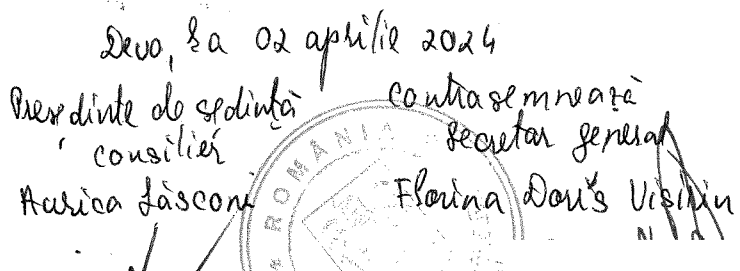 Deva, la 02 aprilie 2024
Președinte de ședință
consilier
Aurica Lăsconi
Contrasemnează
secretar general
Florina Doris Visirin
ROMÂNIA